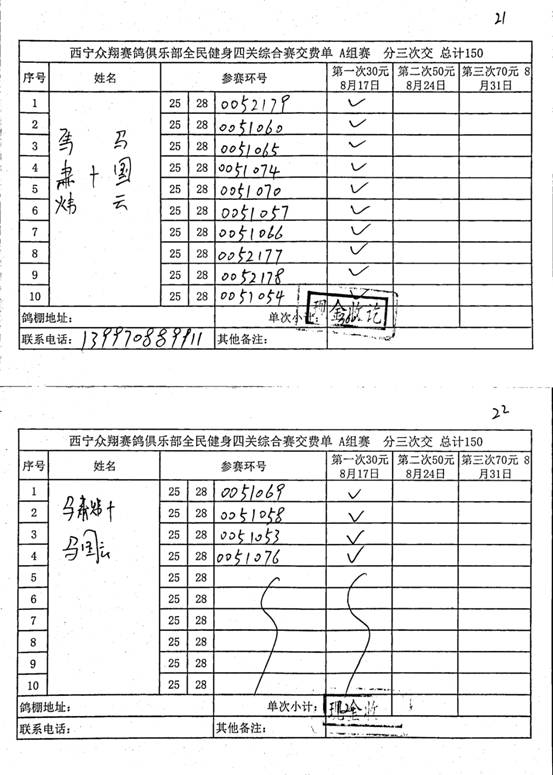 21
西宁众翔赛鸽俱乐部全民健身四关综合赛交费单 A组赛 分三次交 总计150
序号 姓名 参赛环号 第一次30元 8月17日 第二次50元 8月24日 第三次70元 8月31日
1 25 28 0052179 ✓
2 25 28 0051060 ✓
3 25 28 0051065 ✓
4 25 28 0051074 ✓
5 25 28 0051070 ✓
6 25 28 0051057 ✓
7 25 28 0051066 ✓
8 25 28 0052177 ✓
9 25 28 0052178 ✓
10 25 28 0051054 ✓
马肃炜+马国云
鸽棚地址: 单次小计: 现金收讫
联系电话: 13997088991 其他备注:
22
西宁众翔赛鸽俱乐部全民健身四关综合赛交费单 A组赛 分三次交 总计150
序号 姓名 参赛环号 第一次30元 8月17日 第二次50元 8月24日 第三次70元 8月31日
1 25 28 0051069 ✓
2 马肃炜+ 25 28 0051058 ✓
3 25 28 0051053 ✓
4 马国云 25 28 0051076 ✓
5 25 28
6 25 28
7 25 28
8 25 28
9 25 28
10 25 28
鸽棚地址: 单次小计: 现金收
联系电话: 其他备注: